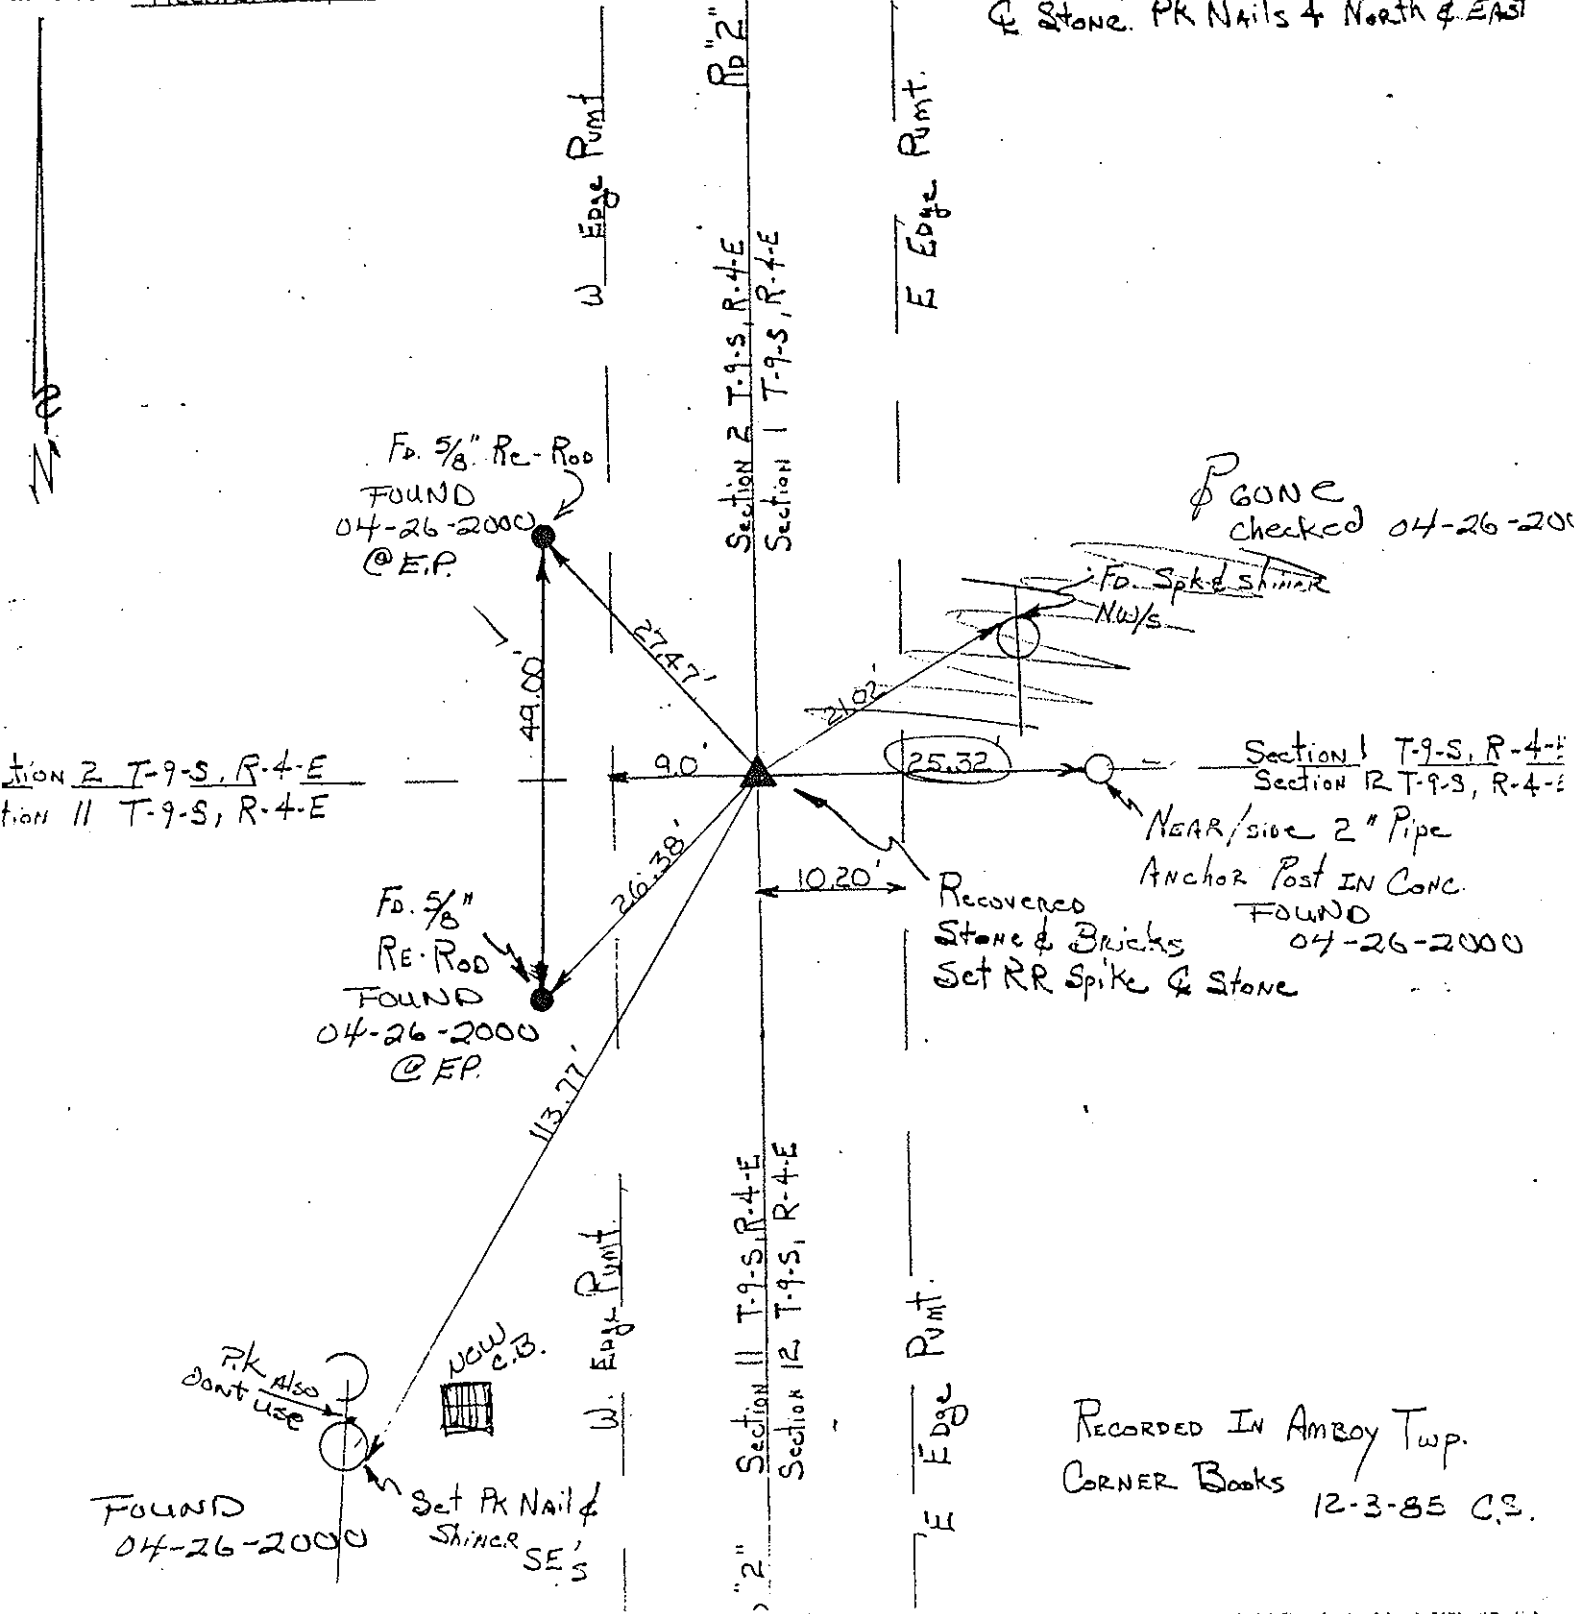 ℄ Stone. PK Nails 4 North & EAST
RD "2"
W Edge Pvmt
E Edge Pvmt.
Section 2 T-9-S, R-4-E
Section 1 T-9-S, R-4-E
N
FD. 5/8" Re-Rod
FOUND
04-26-2000
@ E.P.
GONE
checked 04-26-200
FD. Spk & shiner
NW/s
27.47'
21.02'
49.00'
9.0'
25.32'
tion 2 T-9-S, R-4-E
tion 11 T-9-S, R-4-E
Section 1 T-9-S, R-4-E
Section 12 T-9-S, R-4-E
NEAR/side 2" Pipe
ANchor Post IN Conc.
FOUND
04-26-2000
10.20'
26.38'
Recovered
Stone & Bricks
Set RR Spike ℄ Stone
FD. 5/8"
RE-ROD
FOUND
04-26-2000
@ EP.
113.77'
Section 11 T-9-S, R-4-E
Section 12 T-9-S, R-4-E
W. Edge Pvmt.
E Edge Pvmt.
NOW
C.B.
P.K Also
dont use
Set PK Nail &
Shiner
SE's
FOUND
04-26-2000
Recorded In Amboy Twp.
Corner Books
12-3-85 C.S.
"2"